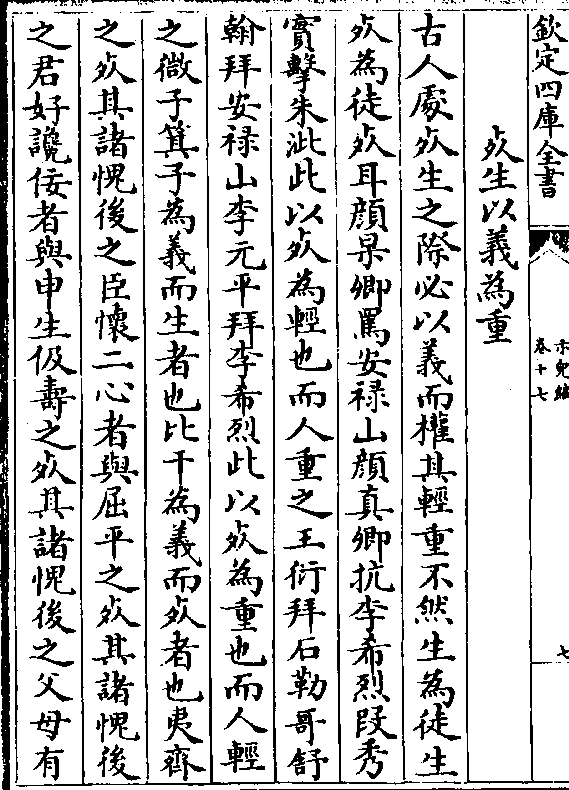 欽定四庫全書
示兒編
卷十七
七
死生以義為重
古人處死生之際必以義而權其輕重不然生為徒生
死為徒死耳顔杲卿罵安禄山顔真卿抗李希烈段秀
實擊朱泚此以死為輕也而人重之王衍拜石勒哥舒
翰拜安禄山李元平拜李希烈此以死為重也而人輕
之微子箕子為義而生者也比干為義而死者也夷齊
之死其諸愧後之臣懷二心者與屈平之死其諸愧後
之君好讒佞者與申生伋壽之死其諸愧後之父母有